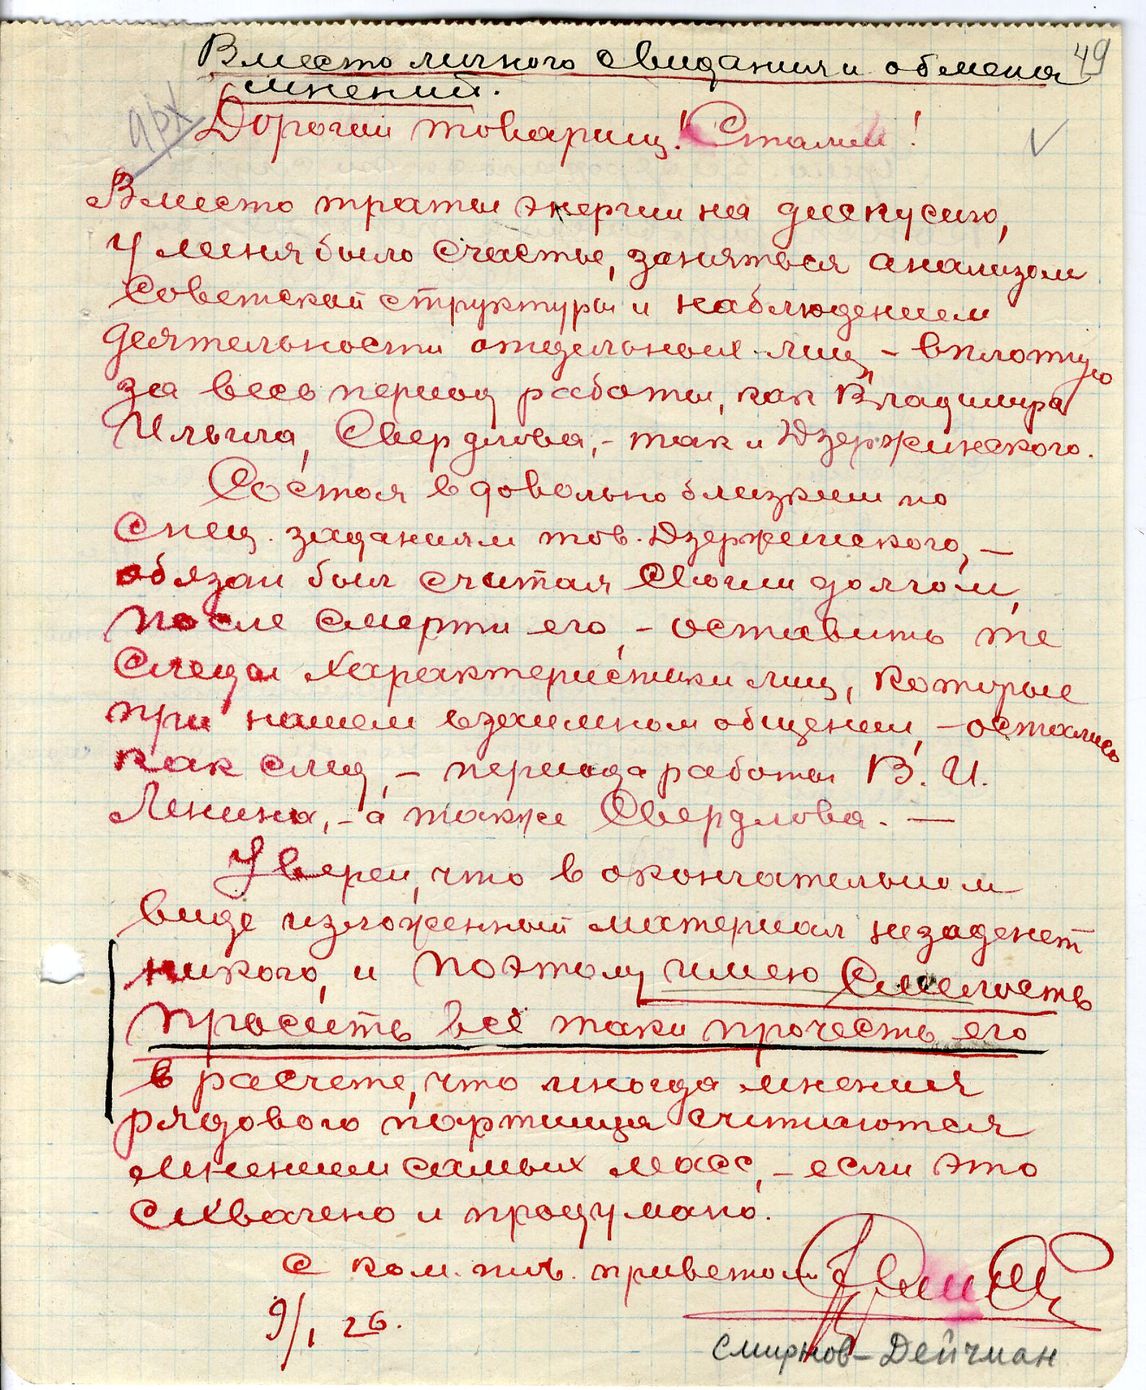 49
Вместо личного свидания и обмена
мнений.
арх
Дорогой товарищ! Сталин!
Вместо траты энергии на дискусию,
у меня было счастье, заняться анализом
Советской структуры и наблюдением
деятельности отдельных лиц – вплотную
за весь период работы, как Владимира
Ильича, Свердлова, – так и Дзержинского.
Состоя в довольно близким по
спец. заданиям тов. Дзержинского, –
обязан был считая своим долгом,
после смерти его, – оставить те
следы характеристики лиц, которые
при нашем взаимном общении, – остались
как след, – периода работы В. И.
Ленина, – а также Свердлова. —
Уверен, что в окончательном
виде изложенный материал не заденет
никого, и поэтому имею смелость
просить всё таки прочесть его
в расчете, что иногда мнения
рядового партийца считаются
мнением самых масс, – если это
схвачено и продумано.
С ком. прив. приветом
9/I 26.
Смирнов-Дейчман